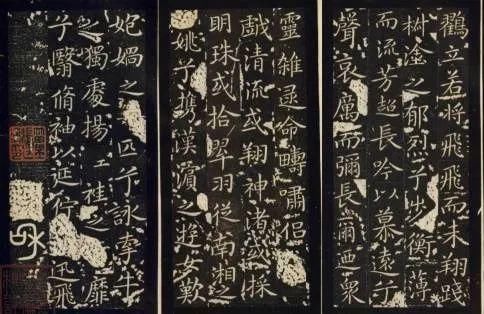 鶴立若將飛飛而未翔踐
椒塗之郁烈兮步衡薄
而流芳超長吟以慕遠兮
聲哀厲而彌長爾迺衆
靈雜遝命疇嘯侶
戲清流或翔神渚或採
明珠或拾翠羽從南湘之
姚兮攜漢濱之遊女歎
媧之匹兮詠牽牛
之獨處揚袿之靡
兮翳脩袖以延佇迅飛